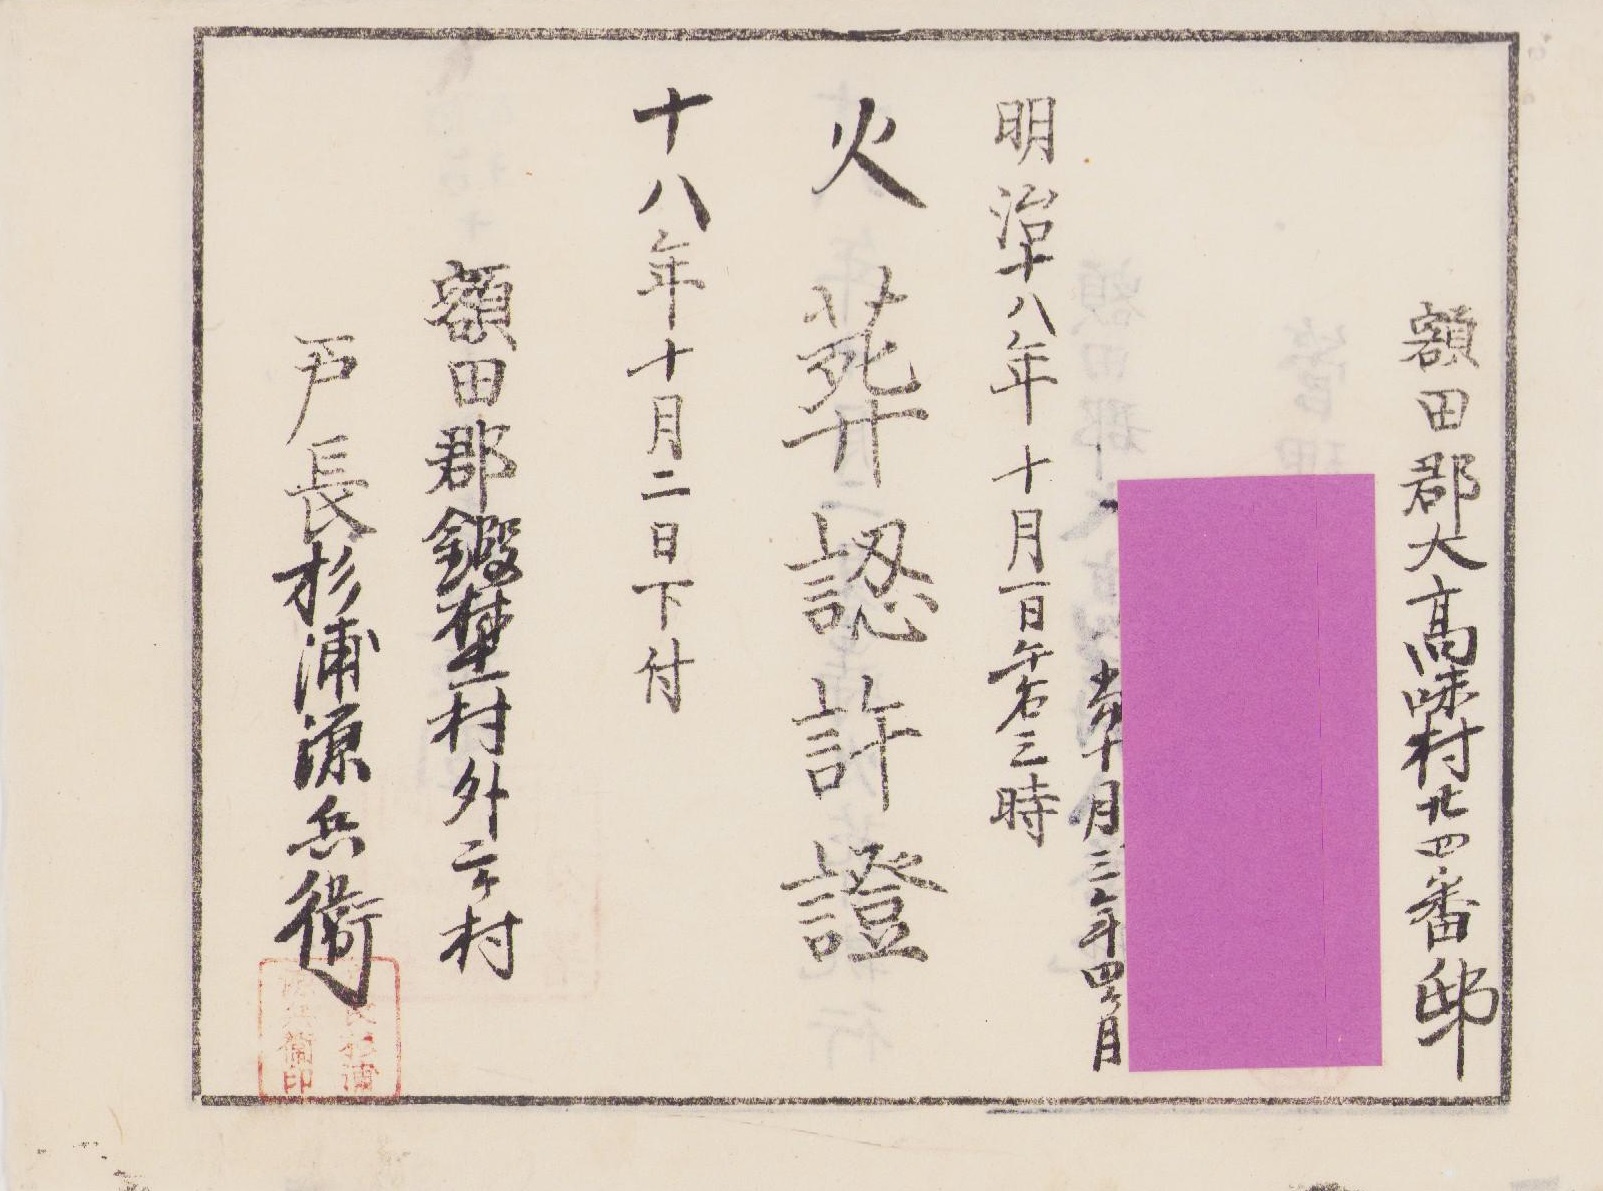 額田郡大高味村廿四番邸
十月三年四ヶ月
明治十八年十月一日午后三時
火葬認許證
十八年十月二日下付
額田郡鍛埜村外二ヶ村
戸長杉浦源兵衛